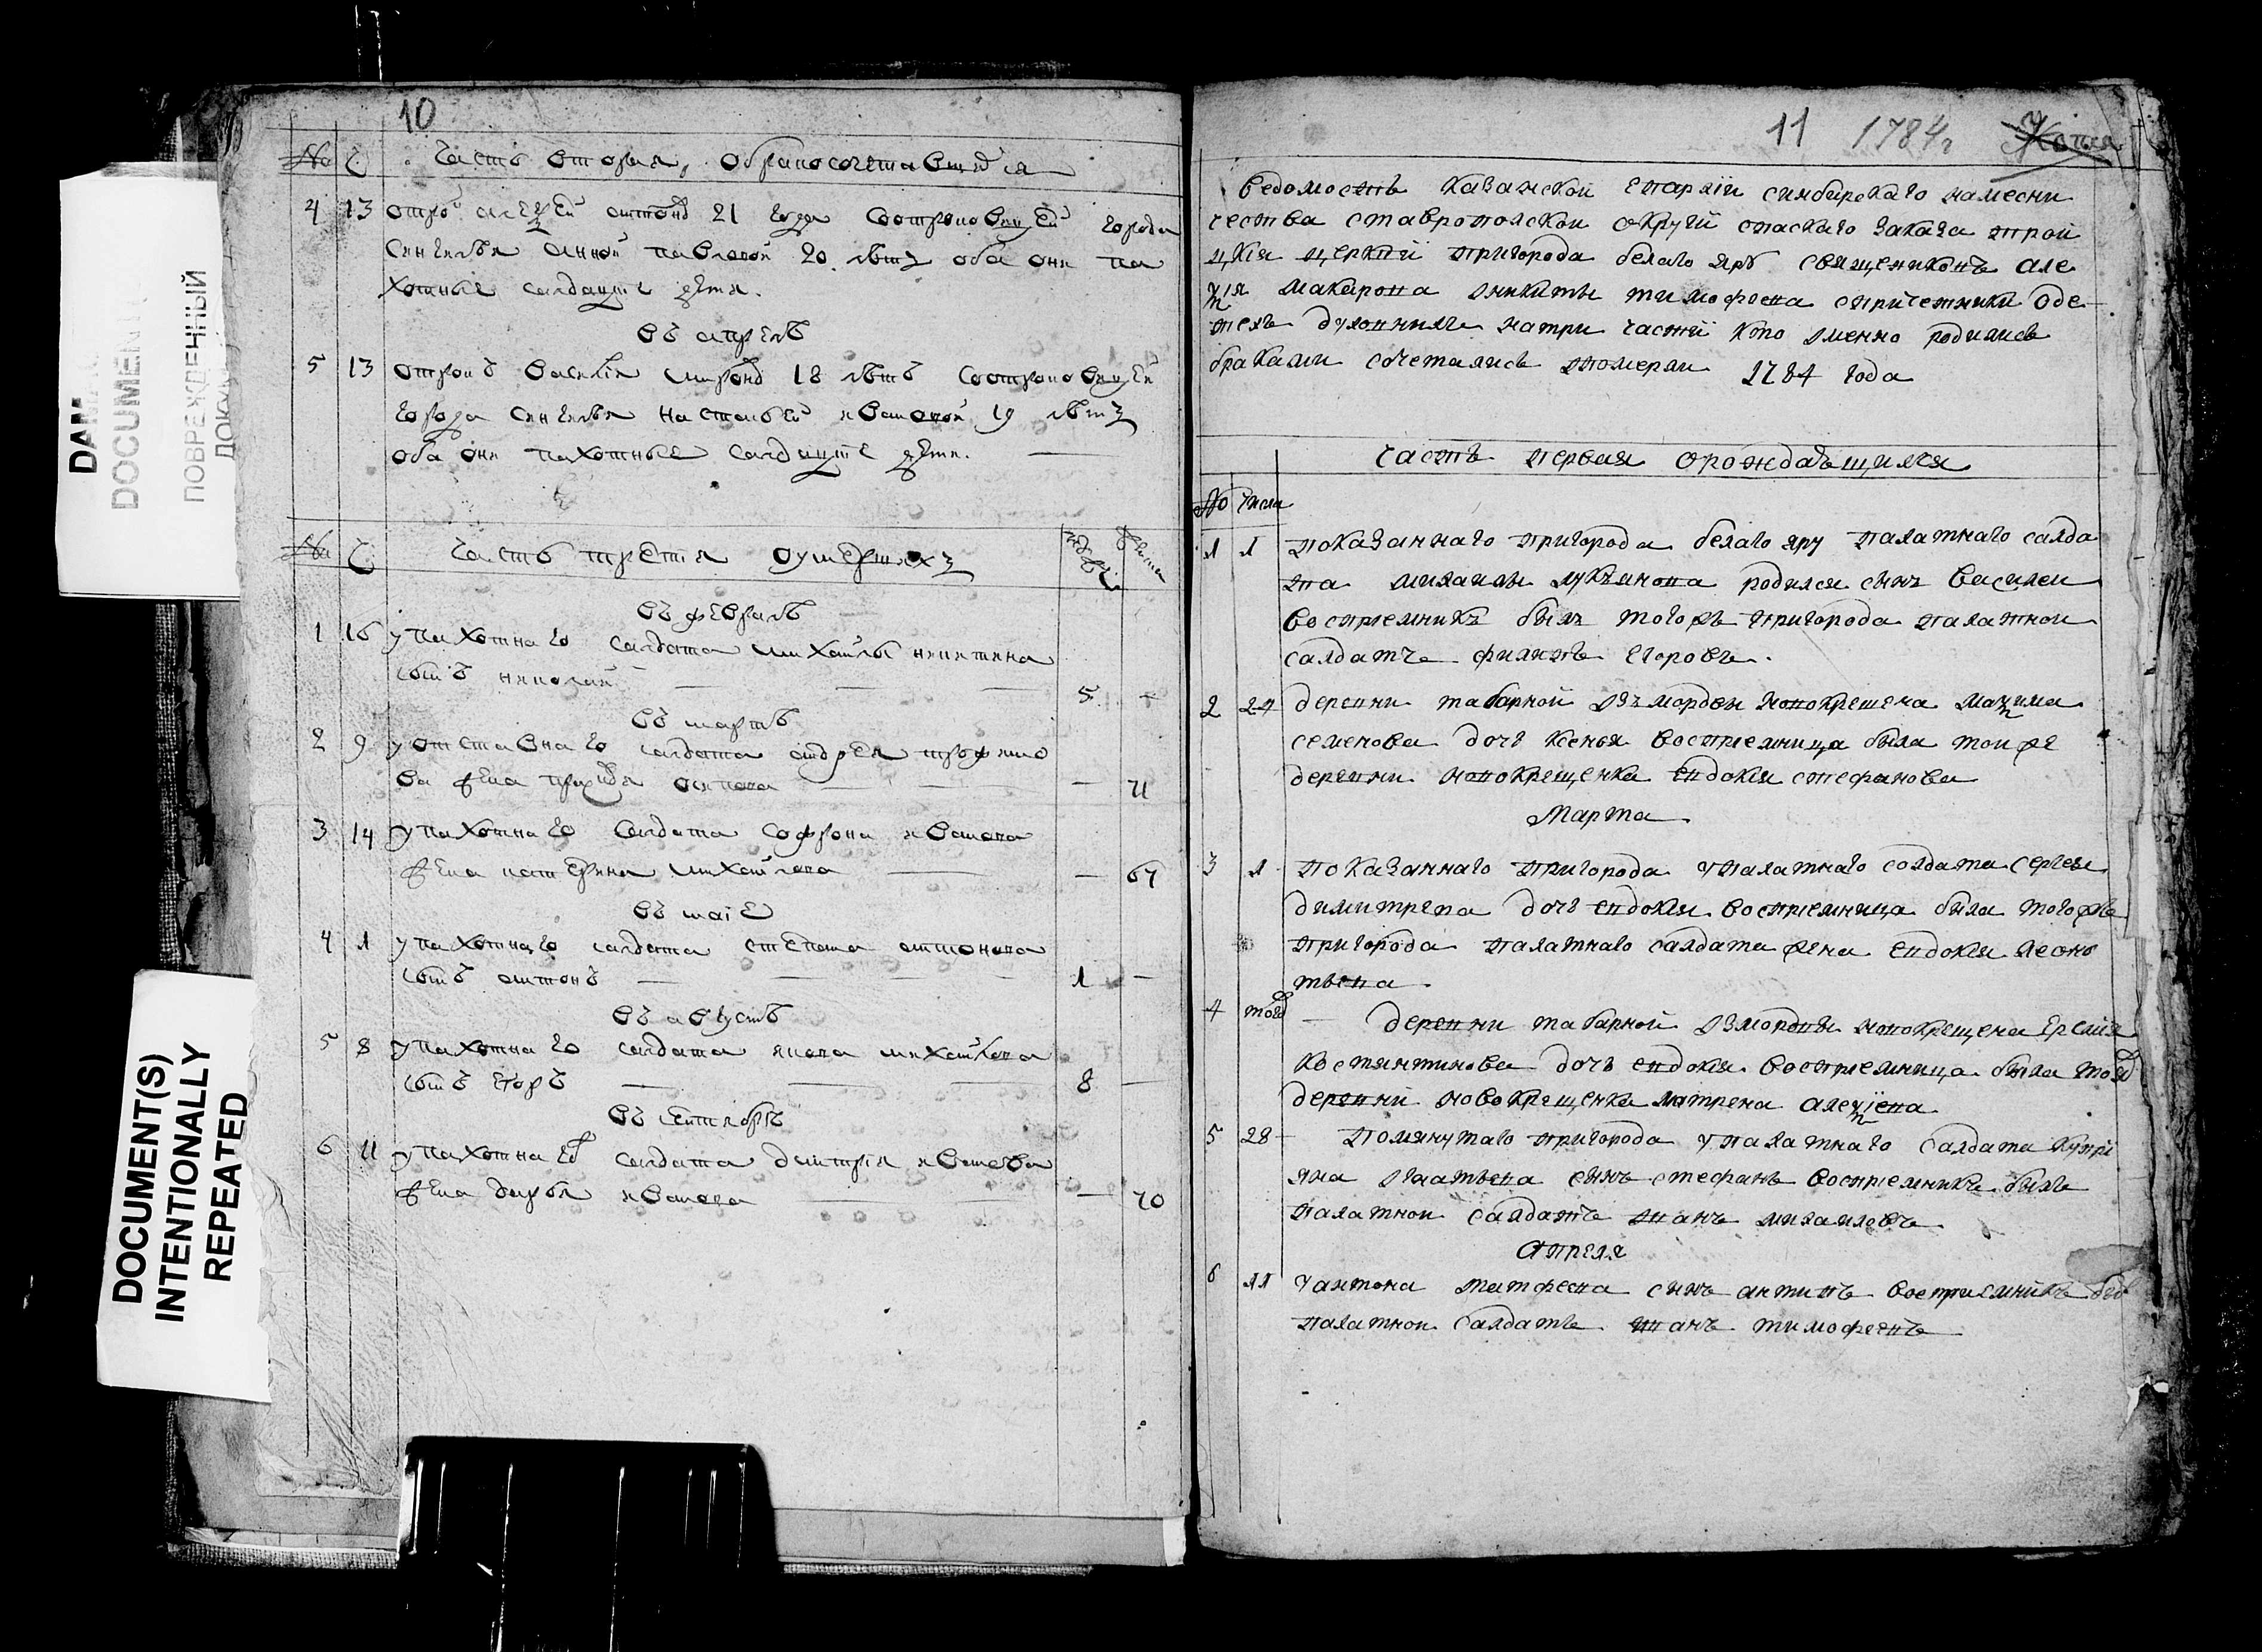 10
№ Ч Часть вторая, обракосочетавшихся
4 13 отрокъ алеѯей антоновъ 21 года соотроковицей города
Сингилея анной павловой 20 летъ оба они па
хотные салдацкие дети.
въ апреле
5 13 отрокъ василей миронов 18 летъ соотроковицей
города сингилея настасьей ивановой 19 летъ
оба они пахотные салдацкие дети.
№ Ч Часть третия оумершихъ
въ феврале
1 16 упахотнаго салдата михайлы никитина
сынъ николай 5 —
въ марте
2 9 уотставнаго салдата андрея трофимо
ва жена осипова — 71
3 14 упахотнаго салдата софрона иванова
жена катерина михайлова — 67
въ маiе
4 1 упахотнаго салдата степана антонова
сынъ антонъ 1 —
въ августе
5 8 упахотнаго салдата якова михайлова
сынъ егоръ 8 —
въ сентябре
6 11 упахотнаго салдата дмитрiя иванова
жена дарья иванова — 70
DAM
DOCUMENT
ПОВРЕЖДЕННЫЙ
ДОКУМ
DOCUMENT(S)
INTENTIONALLY
REPEATED
11 1784г Копия
Ведомость казанской епархiи синбирскаго намесни
чества ставропольской округи спаскаго заказа трой
цкiя церкви пригорода белаго яру священиковъ але
ѯiя макарова никиты тимофеева спричетники оде
техъ духовныхъ натри части кто имянно родились
браками сочетались ипомерли 1784 года
часть первая орождающихся
№ Числа
1 1 показаннаго пригорода белаго яру палатнаго салда
та михаилы лукьянова родился сынъ василеи
восприемникъ былъ тогожъ пригорода палатнои
салдатъ филипъ егоровъ.
2 24 деревни табарнои изъ мордвы новокрещена маѯима
семенова дочь ксенья восприемница была тои же
деревни новокрещенка евдокiя стефанова
Марта
3 1 показаннаго пригорода упалатнаго солдата сергея
димитрева дочь евдокiя восприемница была тогожъ
пригорода палатнаго салдата жена евдокiя леонь
тьева.
4 тогож деревни табарной измордвы новокрещена
костянтинова дочь евдокiя восприемница была тоиж
деревни новокрещенка матрена алеѯiева
5 28 помянутаго пригорода упалатнаго салдата купрi
яна игнатьева сынъ стефанъ восприемникъ былъ
палатнои салдатъ иванъ михаиловъ
Апреля
6 11 уантона матфеева сынъ антипъ восприемникъ был
палатнои салдатъ иванъ тимофеевъ